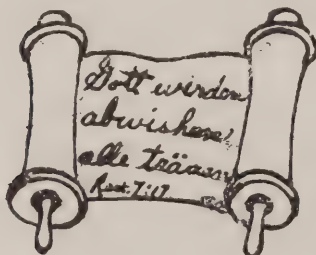 Gott wirdon
abwishen
alle träaen
Rev. 7:17